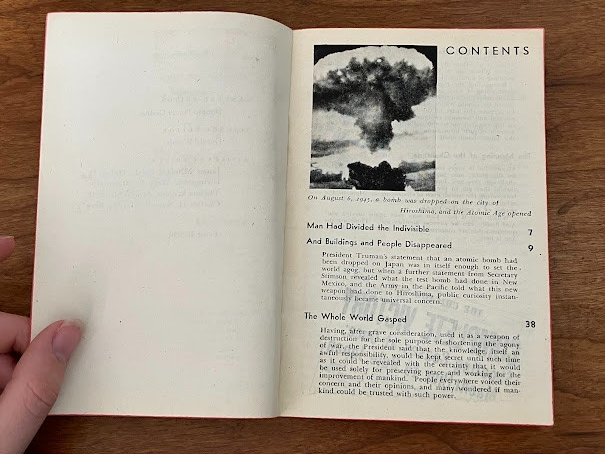 CONTENTS
On August 6, 1945, a bomb was dropped on the city of
Hiroshima, and the Atomic Age opened
Man Had Divided the Indivisible 7
And Buildings and People Disappeared 9
President Truman's statement that an atomic bomb had
been dropped on Japan was in itself enough to set the
world agog, but when a further statement from Secretary
Stimson revealed what the test bomb had done in New
Mexico, and the Army in the Pacific told what this new
weapon had done to Hiroshima, public curiosity instan-
taneously became universal concern.
The Whole World Gasped 38
Having, after grave consideration, used it as a weapon of
destruction for the sole purpose of shortening the agony
of war, the President said that the knowledge, itself an
awful responsibility, would be kept secret until such time
as it could be revealed with the certainty that it would
be used solely for preserving peace and working for the
improvement of mankind. People everywhere voiced their
concern and their opinions, and many wondered if man-
kind could be trusted with such power.